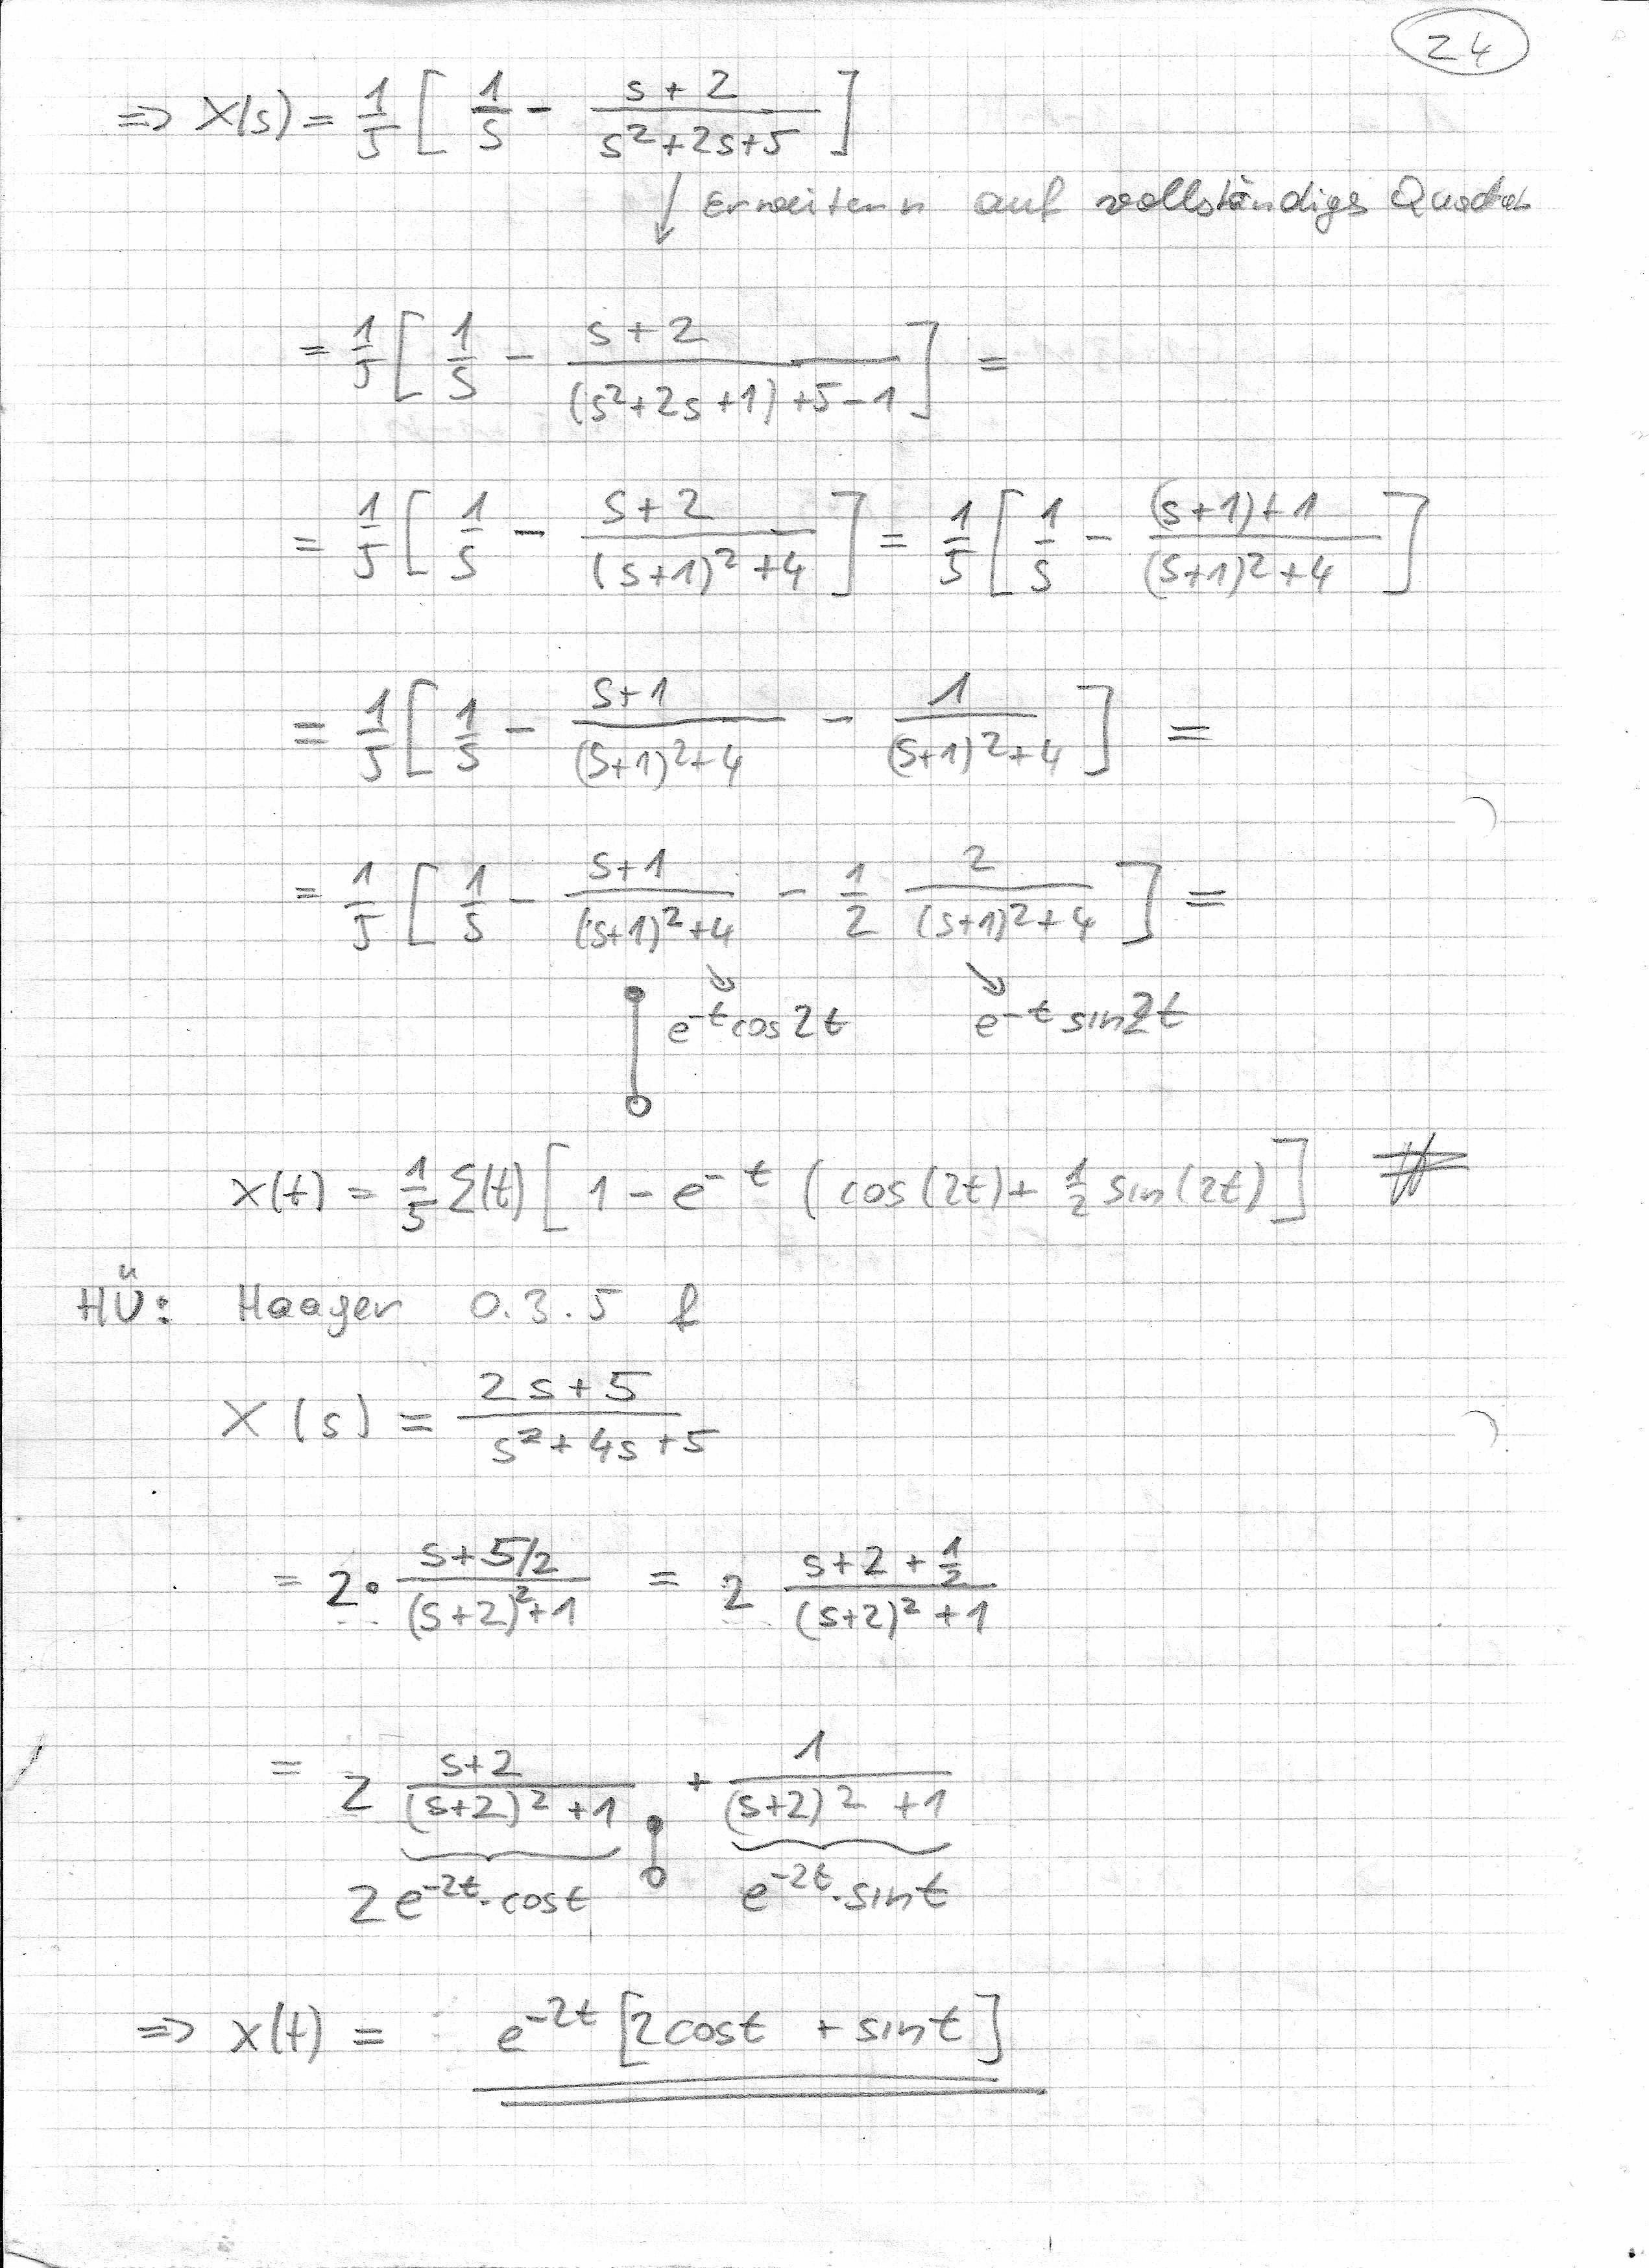 24
=> X(s) = 1/5 [ 1/s - (s+2)/(s²+2s+5) ]
↓ Erweitern auf vollständiges Quadrat
= 1/5 [ 1/s - (s+2)/((s²+2s+1)+5-1) ] =
= 1/5 [ 1/s - (s+2)/((s+1)²+4) ] = 1/5 [ 1/s - ((s+1)+1)/((s+1)²+4) ]
= 1/5 [ 1/s - (s+1)/((s+1)²+4) - 1/((s+1)²+4) ] =
= 1/5 [ 1/s - (s+1)/((s+1)²+4) - 1/2 2/((s+1)²+4) ] =
e^-t cos2t e^-t sin2t
x(t) = 1/5 Σ(t) [ 1 - e^-t ( cos(2t) + 1/2 sin(2t) ]
HÜ: Haager 0.3.5 f
X(s) = (2s+5)/(s²+4s+5)
= 2· (s+5/2)/((s+2)²+1) = 2 (s+2+1/2)/((s+2)²+1)
= 2 (s+2)/((s+2)²+1) + 1/((s+2)²+1)
2e^-2t·cost e^-2t·sint
=> x(t) = e^-2t [2cost + sint]